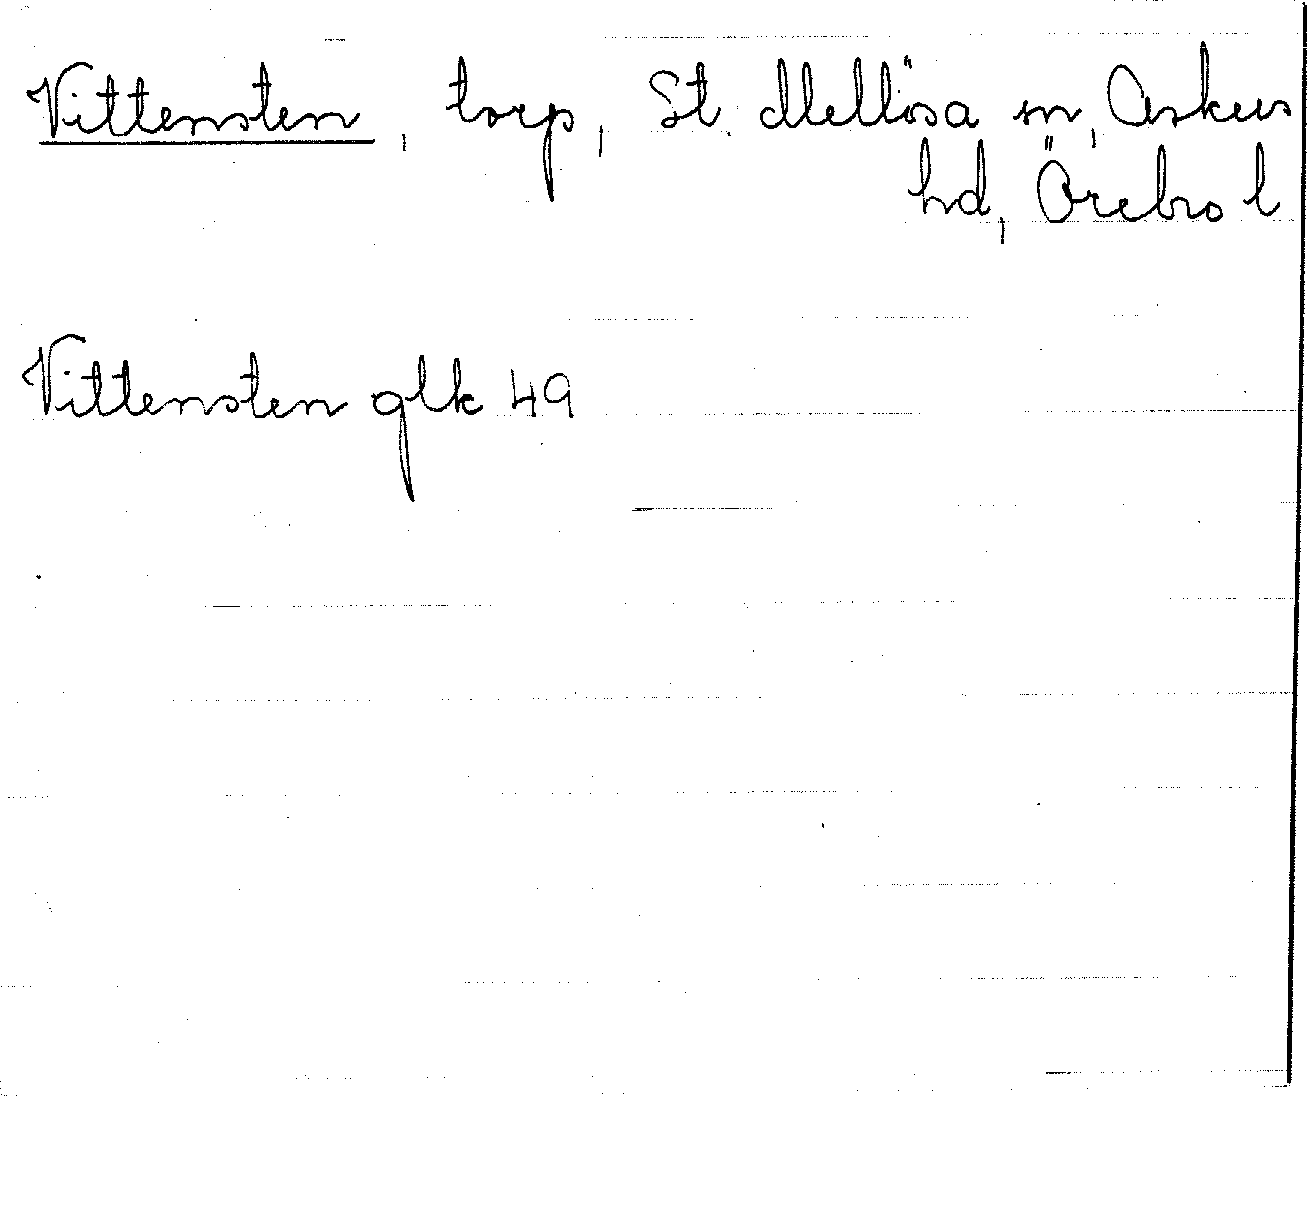 Vittensten, torp, St. Mellösa sn, Askers
hd, Örebro l
Vittensten glk 49